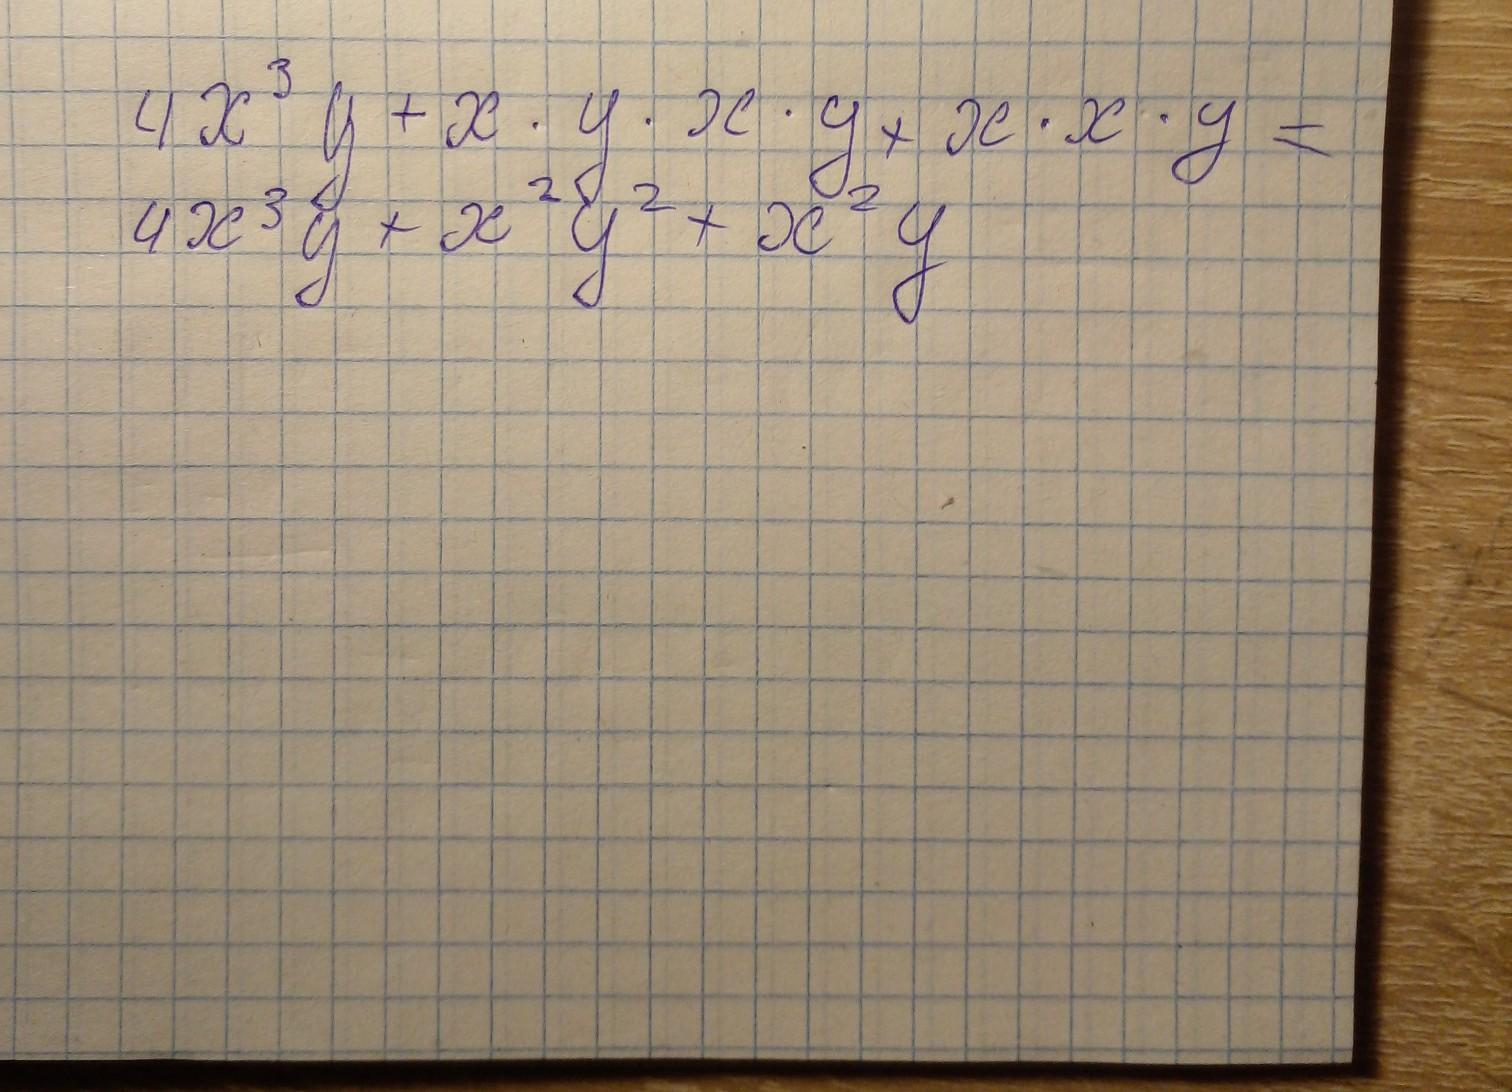 4x³y + x · y · x · y + x · x · y =
4x³y + x²y² + x²y